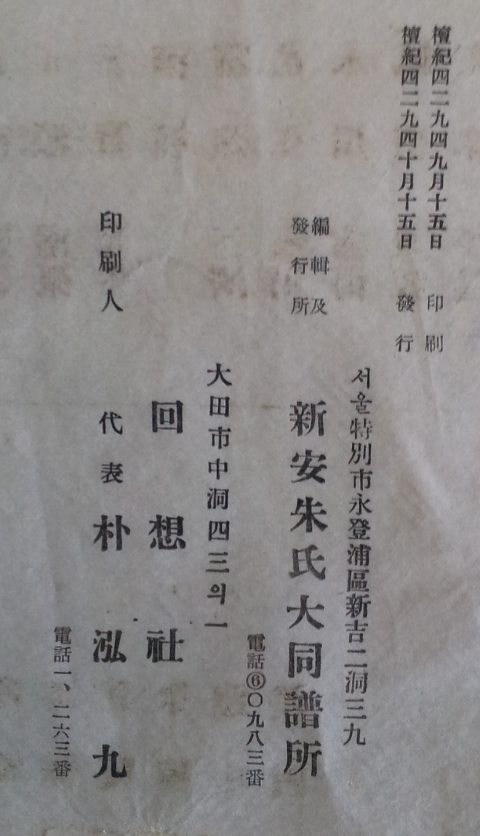 檀紀四二九四九月十五日 印刷
檀紀四二九四十月十五日 發行
서울特別市永登浦區新吉二洞三九
編輯及
發行所
新安朱氏大同譜所
電話⑥〇九八三番
大田市中洞四三의一
回想社
印刷人 代表 朴泓九
電話一、二六三番